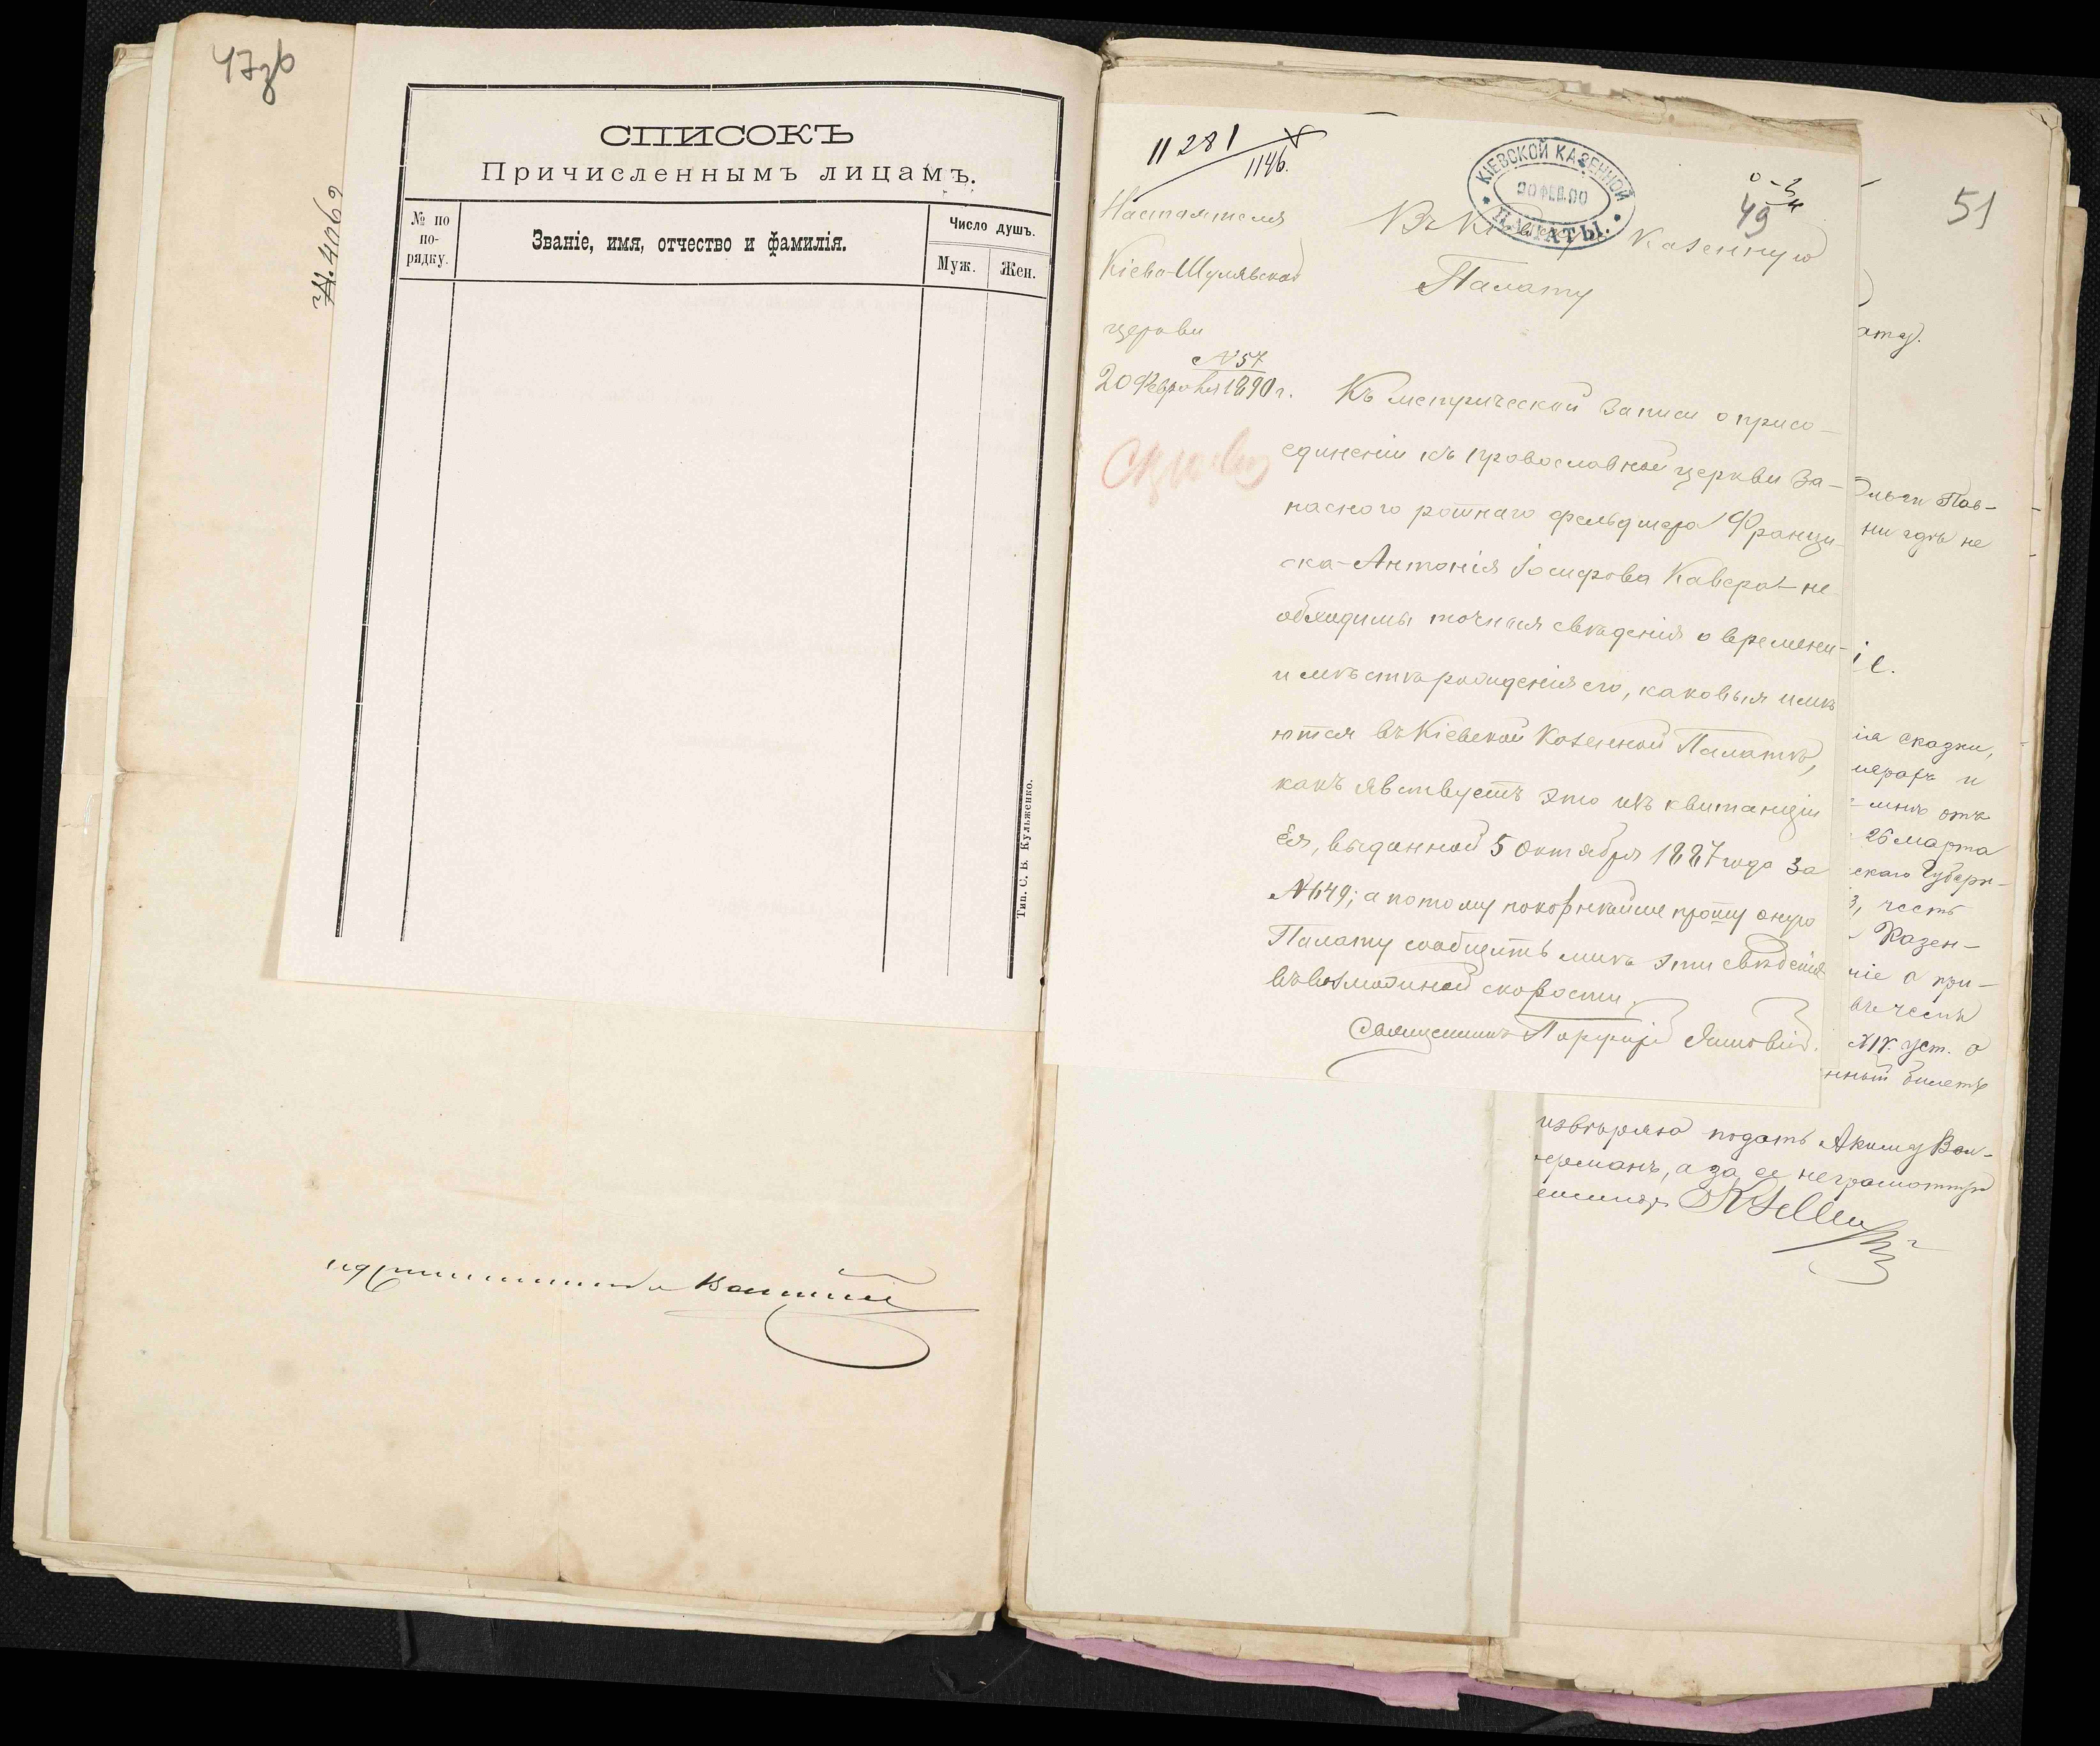 47зв
№ 4069
СПИСОКЪ
Причисленнымъ лицамъ.
№ по по-рядку.
Званіе, имя, отчество и фамилія.
Число душъ.
Муж.
Жен.
Тип. С. В. Кульженко.
11281
1146.
КІЕВСКОЙ КАЗЕННОЙ
ПАЛАТЫ.
49
51
Настоятеля
Кіево-Шулявской
церкви
№ 57
20 Февраля 1890 г.
Въ Кіевскую Казенную
Палату
Къ метрической записи о присо-
единеніи къ православной церкви за-
паснаго ротнаго фельдшера Франци-
ска-Антонія Іосифова Кавера не
обходимы точныя свѣдѣнія о времени
и мѣстѣ рожденія его, каковыя имѣ
ются въ Кіевской Казенной Палатѣ,
какъ явствуетъ это изъ квитанціи
Ея, выданной 5 Октября 1887 года за
№ 649; а потому покорнѣйше прошу оную
Палату сообщить мнѣ эти свѣдѣнія
въ возможной скорости.
Священникъ Порфирій
ату.
Ольги Пав-
ни гдѣ не
іе.
ія сказки,
26 марта
скаго Губерн-
3, честь
Казен-
ніе о при-
XIV. уст. о
нный билетъ
подать Акиму Вас-
ерманъ, а за ее неграмотную